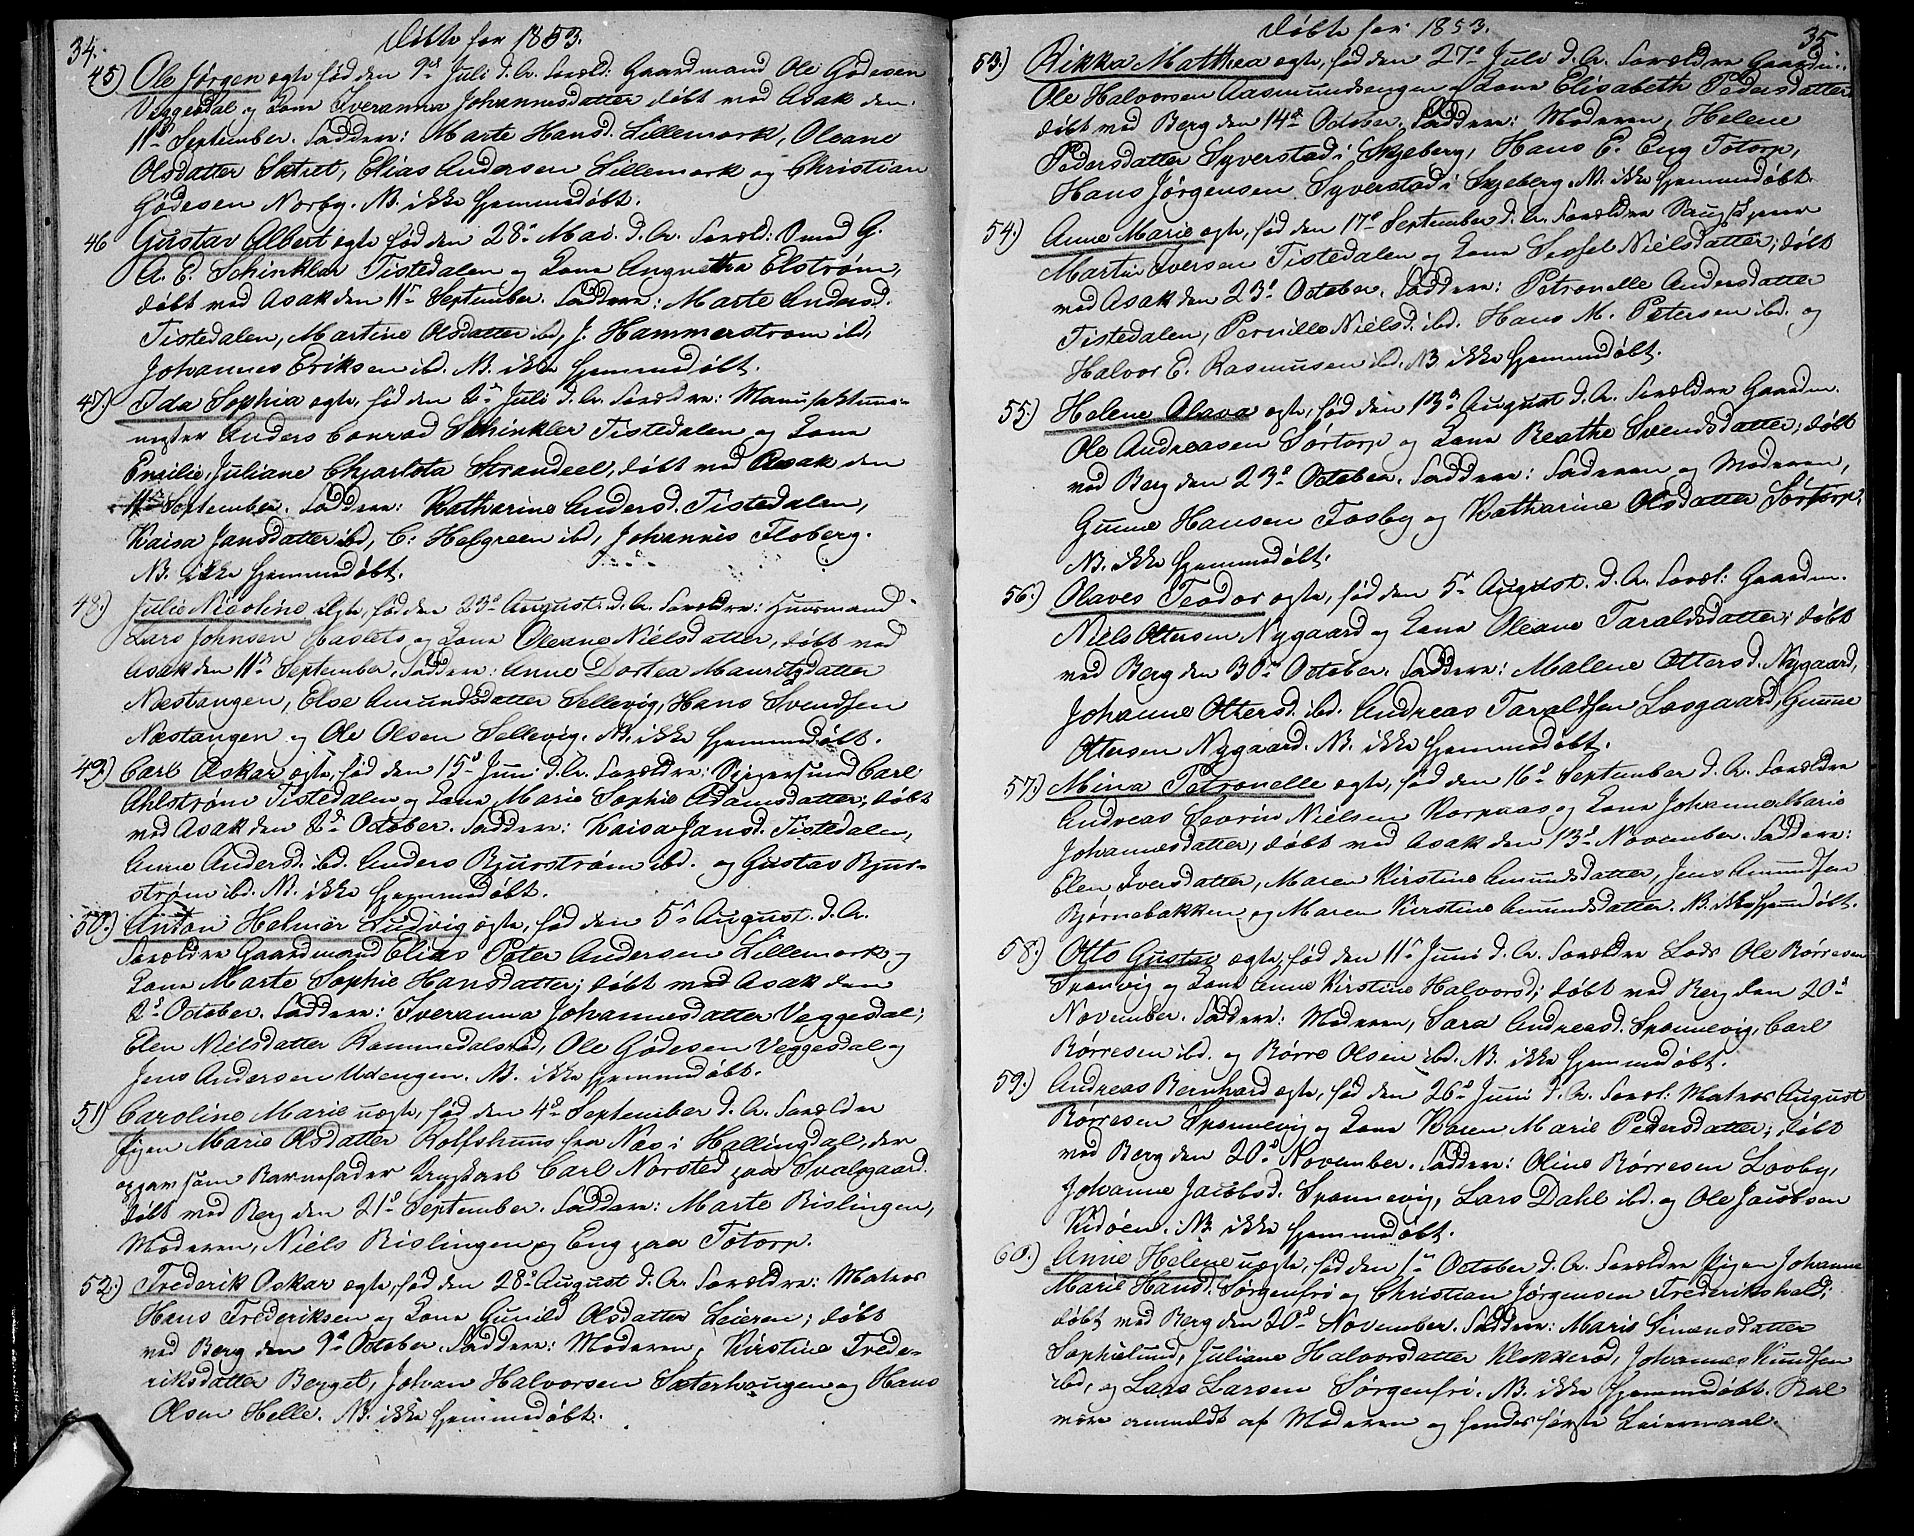 34.
Døbte for 1853.
45) Ole Jørgen ægte, fød den 9de Juli d. A. Foræld: Gaardmand Ole Gødesen
Veggedal og Kona Iveranna Johannesdatter døbt ved Asak den
11te September. Faddere: Marte Hansd. Lillemork, Oleane
Olsdatter Sætret, Elias Andersen Lillemork og Christian
Gødesen Norby. NB. ikke hjemmedøbt.
46 Gustav Albert ægte fød den 28de Mai. d. A. Foræld: Smed G.
A. E. Schinkler Tistedalen og Kona Augustha Elstrøm,
døbt ved Asak den 11te September. Faddere: Marte Andersd.
Tistedalen, Martine Olsdatter ibd, J. Hammerstrøm ibd,
Johannes Eriksen ibd. NB. ikke hjemmedøbt.
47.) Ida Sophia ægte, fød den 2de Juli d. A. Forældre: Manufaktur-
mester Anders Conrad Schinkler Tistedalen og Kona
Emilie Juliane Charlotta Strandeel, døbt ved Asak den
11te September. Faddere: Katharine Andersd. Tistedalen,
Kaisa Jansdatter ibd, C. Helgreen ibd, Johannis Floberg.
NB. ikke hjemmedøbt.
48.) Julie Nicoline ægte, fød den 23de August d. A. Forældre: Huusmand
Lars Johnsen Hasletø og Kona Oleane Nielsdatter, døbt ved
Asak den 11te September, Faddere: Anne Dortea Mauritzdatter
Næstangen, Else Amundsdatter Sellevig, Hans Svendsen
Næstangen og Ole Olsen Sellevig. NB. ikke hjemmedøbt.
49.) Carl Oskar ægte, fød den 15de Juni d. A. Forældre: Carl
Ahlstrøm Tistedalen og Kona Marie Sophie Adamsdatter, døbt
ved Asak den 2de October. Faddere: Kaisa Jansd. Tistedalen,
Anne Andersd. ibd. Anders Bjurstrøm ibd. og Gustav Bjur-
strøm ibd. NB. ikke hjemmedøbt.
50.) Anton Helmer Ludvig ægte, fød den 5te August d. A.
Forældre Gaardmand Elias Peter Andersen Lillemork og
Kona Marte Sophie Hansdatter; døbt ved Asak den
2de October. Faddere: Iveranna Johannesdatter Veggedal;
Elen Nielsdatter Rammedalsrød, Ole Gødesen Veggesdal og
Jens Andersen Udengen. NB. ikke hjemmedøbt.
51) Caroline Marie uægte, fød den 4de September d. A. Forældre
Pigen Marie Olsdatter Rolfshuus fra Næs i Hallingdal, der
opgav som Barnefader Ungkarl Carl Norsted paa Svalgaard.
døbt ved Berg den 21de September. Faddere: Marte Rislingen,
Moderen, Niels Rislingen og Eng paa Totorp.
52.) Frederik Oskar ægte, fød den 28de August d. A. Forældre: Matros
Hans Frederiksen og Kona Gunild Olsdatter Leieren; døbt
ved Berg den 9de October. Faddere: Moderen, Kirstine Frede-
riksdatter Berget, Johan Halvorsen Sæterhaugen og Hans
Olsen Helle. NB. ikke hjemmedøbt.
Døbte for 1853.
35.
53.) Rikka Mathea ægte, fød den 27de Juli d. A. Forældre Gaardm.
Ole Halvorsen Aasmundsengen og Kona Elisabeth Pedersdatter,
døbt ved Berg den 14de October. Faddere: Moderen, Helene
Pedersdatter Syverstad i Skjeberg, Hans E. Eng Totorp,
Hans Jørgensen Syverstad i Skjeberg. NB. ikke hjemmedøbt.
54.) Anne Marie ægte, fød den 17de September d. A. Forældre
Martin Iversen Tistedalen og Kona Sessel Nielsdatter, døbt
ved Asak den 23de October. Faddere: Petronelle Andersdatter
Tistedalen, Pernille Nielsd. ibd. Hans M. Petersen ibd. og
Halvor E. Rasmusen ibd. NB ikke hjemmedøbt.
55.) Helene Olava ægte, fød den 13de August d. A. Forældre Gaardm.
Ole Andreasen Sørtorp og Kona Beathe Svendsdatter; døbt
ved Berg den 23de October. Faddere: Faderen og Moderen,
Gunne Hansen Fosby og Katharine Olsdatter Sørtorp.
NB. ikke hjemmedøbt.
56.) Olaves Teodor ægte, fød den 5te August d. A. Foræl: Gaardm.
Niels Ottersen Nygaard og Kona Oleane Taraldsdatter, døbt
ved Berg den 30te October. Faddere: Malene Ottersd. Nygaard,
Johanne Ottersd. ibd. Andreas Taraldsen Løsgaard, Gunne
Ottersen Nygaard. NB. ikke hjemmedøbt.
57.) Mina Petronelle ægte, fød den 16de September d. A. Forældre
Andreas Severin Nielsen Korpaas og Kona Johanne Marie
Johannesdatter, døbt ved Asak den 13de November. Faddere:
Elen Iversdatter, Maren Kirstine Amundsdatter, Jens Amundsen
Bjørnebakken og Maren Kirstine Amundsdatter. NB. ikke hjemmedøbt.
58.) Otto Gustav ægte, fød den 11te Juni d. A. Forældre Lods Ole Børresen
Sponvig og Kona Anne Kirstine Halvorsd; døbt ved Berg den 20de
November. Faddere: Moderen, Sara Andreasd. Sponnevig, Carl
Børresen ibd. og Børre Olsen ibd. NB. ikke hjemmedøbt.
59.) Andreas Bernhard ægte, fød den 26de Juni d. A. Foræl: Matros August
Børresen Sponnevig og Kona Karen Marie Pedersdatter; døbt
ved Berg den 20de November. Faddere: Oline Børresen Løvby,
Johanne Jacobsd. Sponnevig, Lars Dahl ibd. og Ole Jacobsen
Kidøen. NB. ikke hjemmedøbt.
60.) Anne Helene uægte, fød den 1te October d. A. Forældre Pigen Johanne
Marie Hansd. Sørgenfrø og Christian Jørgensen Frederikshald;
døbt ved Berg den 20de November. Faddere: Marie Simensdatter
Sophielund, Juliane Halvorsdatter Klokkerød, Johannes Knudsen
ibd, og Lars Larsen Sørgenfri. NB. ikke hjemmedøbt. Skal
være anmeldt af Moderen og hendes første Leiermaal.